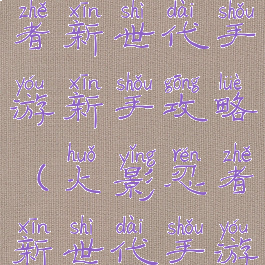 zhě xīn shì dài shǒu
者新世代手
yóu xīn shǒu gōng lüè
游新手攻略
huǒ yǐng rěn zhě
（火影忍者
xīn shì dài shǒu yóu
新世代手游